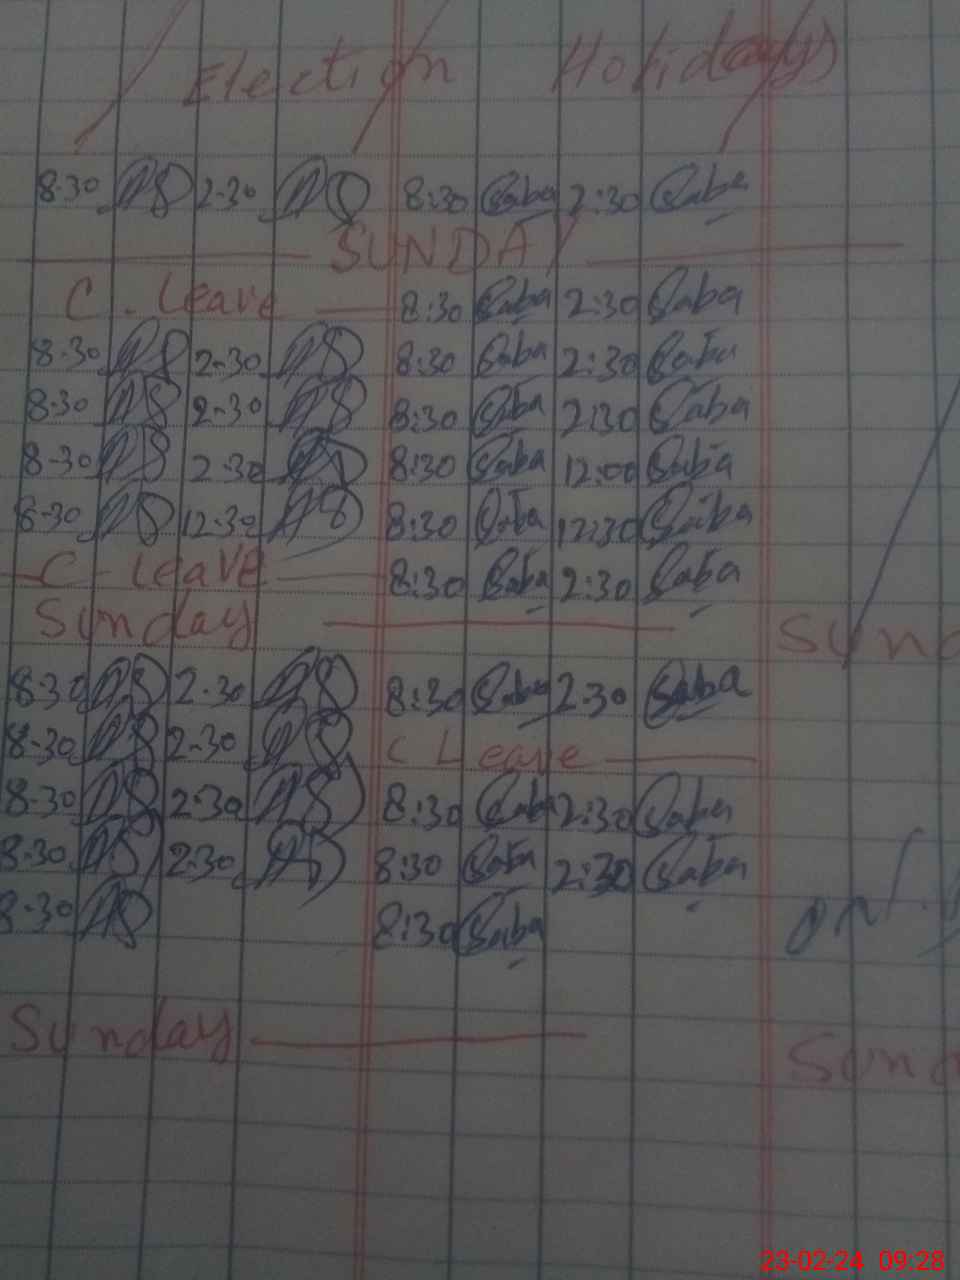 Election Holidays
8.30 AS 2-30 AS 8:30 Saba 2:30 Saba
SUNDAY
C. Leave 8:30 Saba 2:30 Saba
8.30 AS 2-30 AS 8:30 Saba 2:30 Saba
8.30 AS 2-30 AS 8:30 Saba 2:30 Saba
8-30 AS 2.30 AS 8:30 Saba 12:00 Saba
8-30 AS 12-30 AS 8:30 Saba 12:30 Saba
C- Leave 8:30 Saba 2:30 Saba
Sunday
8-30 AS 2-30 AS 8:30 Saba 2:30 Saba
8-30 AS 2-30 AS C Leave
8-30 AS 2-30 AS 8:30 Saba 2:30 Saba
8-30 AS 2-30 AS 8:30 Saba 2:30 Saba
8-30 AS 8:30 Saba
Sunday
23-02-24 09:28